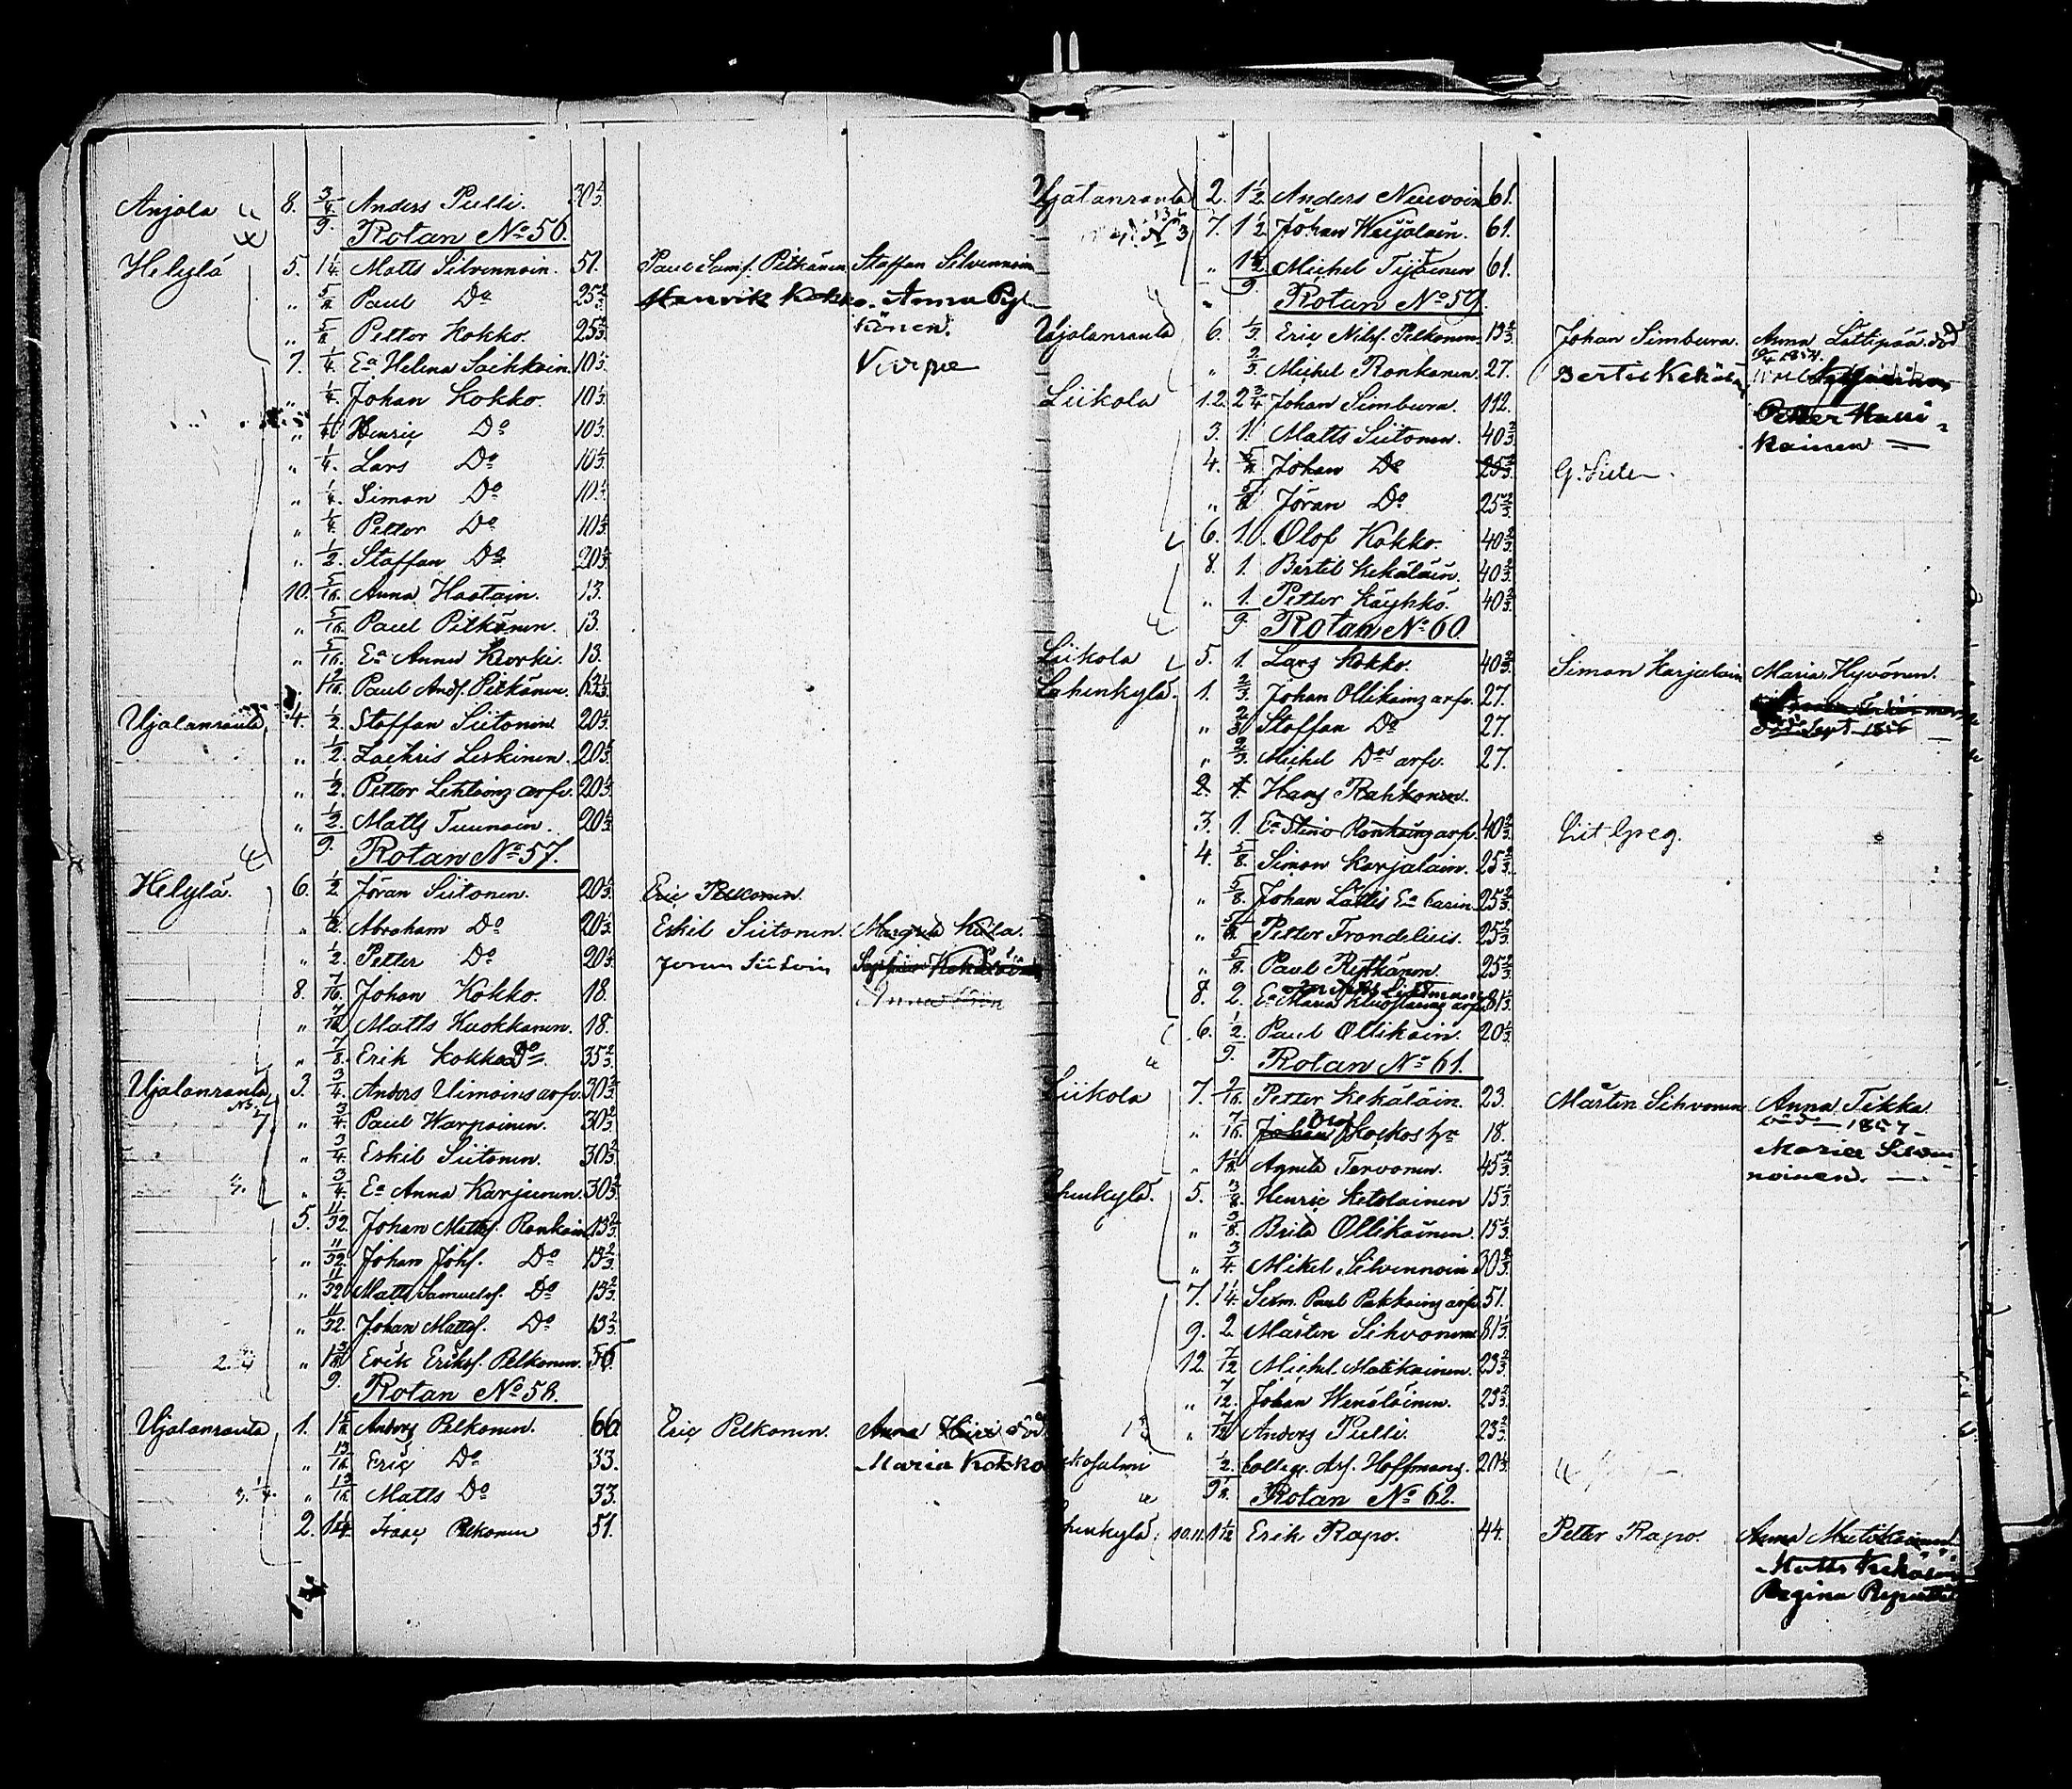 Anjala 8. 3/4. Anders Pulli. 30 2/3
9. Rotan No 56.
Helylä 5. 1 1/4. Matts Silvennoin. 51. Paul Samf. Pitkänen Staffan Silvennoin
" 5/8 Paul Do 25 2/3 Henrik Kokko. Anna Pyl-
" 5/8 Petter Kokko. 25 2/3 känen.
7. 1/4. Ea Helena Saikkoin. 10 1/3 Varpe
" 1/4. Johan Kokko. 10 1/3
" 1/4 Henric Do 10 1/3
" 1/4. Lars Do 10 1/3
" 1/4. Simon Do 10 1/3
" 1/4. Petter Do 10 1/3
" 1/2. Staffan Do 20 1/3
10. 5/16. Anna Haatain. 13.
" 5/16. Paul Pitkänen. 13.
" 5/16. Ea Anna Kurki. 13.
Paul Andf. Pitkänen.
Ujalanranta 4. 1/2. Staffan Siitonen. 20 1/3
" 1/2. Zachris Leskinen. 20 1/3
" 1/2. Petter Lehtoinz arfv. 20 1/3
" 1/2. Matts Tuunain. 20 1/3
9. Rotan No 57.
Helylä. 6. 1/2 Jöran Siitonen. 20 1/3 Eric Pelkonen.
" 1/2. Abraham Do 20 1/3 Eskil Siitonen. Margreta
" 1/2. Petter Do 20 1/3 Joran Siitoin
8. 7/16. Johan Kokko. 18. Anna
" 7/16 Matts Kuokkanen. 18.
" 7/8. Erik Kokko Do 35 2/3
Ujalanranta 3. 3/4. Anders Uimoins arfv. 30 2/3
" 3/4. Paul Warpainen. 30 2/3
" 3/4. Eskil Siitonen. 30 2/3
" 3/4. Ea Anna Karjunen. 30 2/3
5. 11/32. Johan Mattsf. Ronkain 13 2/3
" 11/32. Johan Johf. Do 13 2/3
" 11/32 Matts Samuelsf. Do 13 2/3
" 11/32. Johan Mattsf. Do 13 2/3
" Erik Eriksf. Pelkonen.
9. Rotan No 58.
Ujalanranta 1. Anders Pelkonen. 66. Eric Pelkonen. Anna död
" 13/16 Eric Do 33. Maria Kokko
" 13/16 Matts Do 33.
2. 1 1/4. Isaac Pelkonen 51.
Ujalanranta 2. 1 1/2. Anders Neuvoin 61.
7. 1 1/2 Johan Karjalain. 61.
" 1 1/2. Michel Tijainen 61.
" 9. Rotan No 59.
Ujalanranta 6. 1/3. Eric Nilsf. Pelkonen. 13 2/3 Johan Simbura. Anna Lättipää död
" 2/3. Michel Ronkanen. 27. Bertil Kekäläin
Liikola 1.2. 2 3/4 Johan Simbura. 112. Petter Kauri-
3. 1. Matts Siitonen. 40 2/3 kainen
4. 5/8 Johan Do 25 2/3
" 5/8 Jöran Do 25 2/3
6. 1. Olof Kokko. 40 2/3
8. 1. Bertil Kekäläin. 40 2/3
" 1. Petter Käyhkö. 40 2/3
9. Rotan No 60.
Liikola 5. 1. Lars Kokko. 40 2/3 Simon Karjalain Maria Hyvönen.
Lahenkylä. 1. 2/3. Johan Ollikainz arfv. 27.
" 2/3 Staffan Do 27. Sept 1856
" 2/3. Michel Dos arfv. 27.
2. 1. Hans Rahkonen.
3. 1. Ea Stina Ronkainz arfv. 40 2/3 Liit. Greg.
4. 5/8. Simon Karjalain. 25 2/3
" 5/8. Johan Lättis Ea Carin. 25 2/3
" 5/8. Petter Frondelius. 25 2/3
" 5/8. Paul Rytkänen. 25 2/3
8. 2. Ea Maria arfv. 81 1/3
6. 1/2. Paul Ollikain. 20 1/3
9. Rotan No 61.
Liikola 7. 9/16. Petter Kekäläin. 23. Mårten Sihvonen Anna Tikka
" 7/16. Johan Olof Kockos hr 18. död 1857
" 1 1/8 Agneta Tervonen. 45 2/3 Maria Silven-
5. 3/8. Henric Ketolainen 15 1/3 noinen.
" 3/8. Brita Ollikainen. 15 1/3
" 3/4. Mikel Silvennoin 30 2/3
7. 1 1/4. Paul Pakkainz arfv. 51.
9. 2. Mårten Sihvonen 81 1/3
12. 7/12 Michel Matikainen. 23 2/3
" 7/12. Johan Wenäläinen. 23 2/3
" 7/12 Anders Pulli. 23 2/3
1/2. Colleg. Asf. Hoffmans. 20 1/3
Rotan No 62.
10.11. 1 1/12 Erik Rapo. 44. Petter Rapo. Anna
Matts Kekäläin
Regina